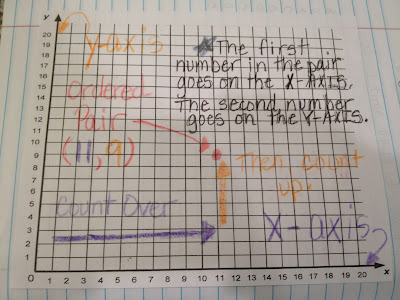 y
y-axis
*The first
number in the pair
goes on the X-AXIS.
The second number
goes on the Y-AXIS.
ordered
Pair
(11, 9)
Then count
up.
Count Over
X-axis
20
19
18
17
16
15
14
13
12
11
10
9
8
7
6
5
4
3
2
1
0
1 2 3 4 5 6 7 8 9 10 11 12 13 14 15 16 17 18 19 20
x